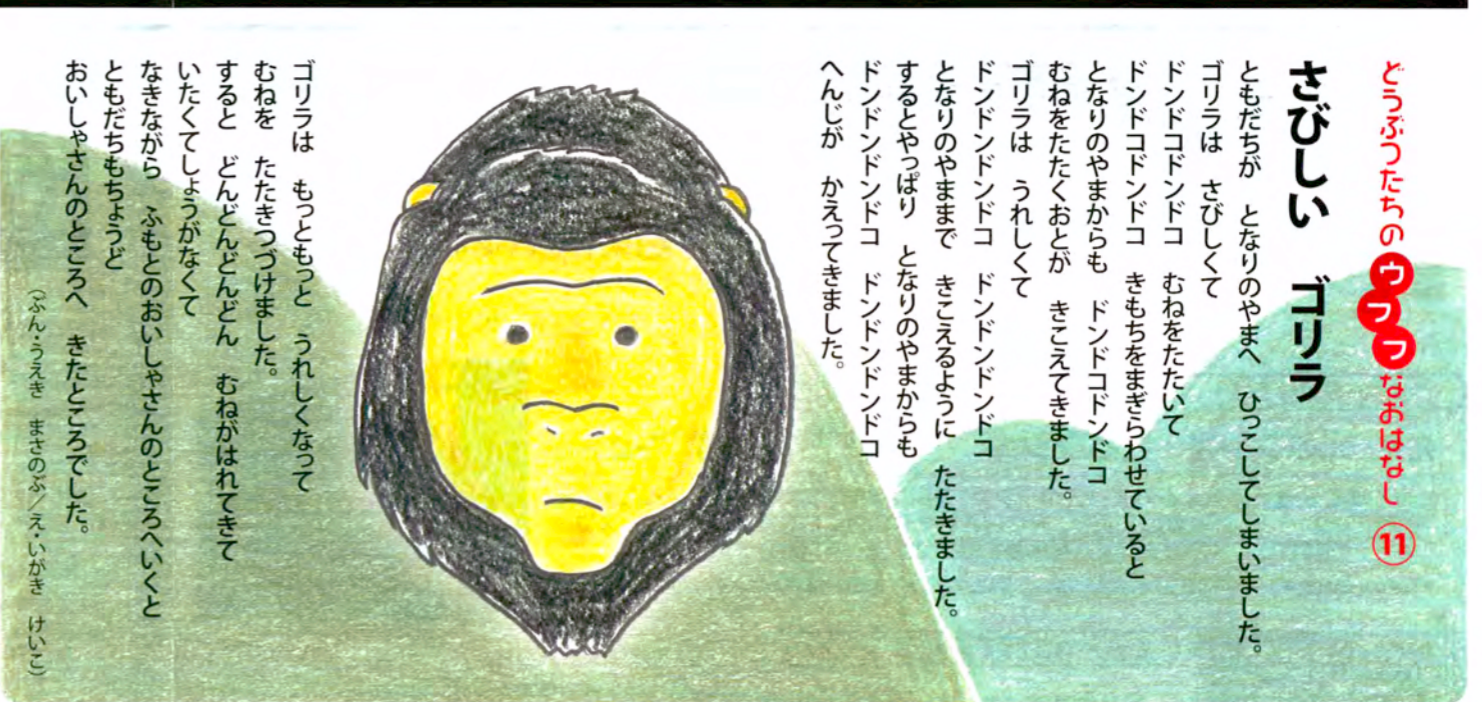 どうぶつたちのウフフなおはなし ⑪
さびしい ゴリラ
ともだちが となりのやまへ ひっこしてしまいました。
ゴリラは さびしくて
ドンドコドンドコ むねをたたいて
ドンドコドンドコ きもちをまぎらわせていると
となりのやまからも ドンドコドンドコ
むねをたたくおとが きこえてきました。
ゴリラは うれしくて
ドンドンドンドコ ドンドンドンドコ
となりのやままで きこえるように たたきました。
するとやっぱり となりのやまからも
ドンドンドンドコ ドンドンドンドコ
へんじが かえってきました。
ゴリラは もっともっと うれしくなって
むねを たたきつづけました。
すると どんどんどんどん むねがはれてきて
いたくてしょうがなくて
なきながら ふもとのおいしゃさんのところへいくと
ともだちもちょうど
おいしゃさんのところへ きたところでした。
(ぶん・うえき まさのぶ/え・いがき けいこ)